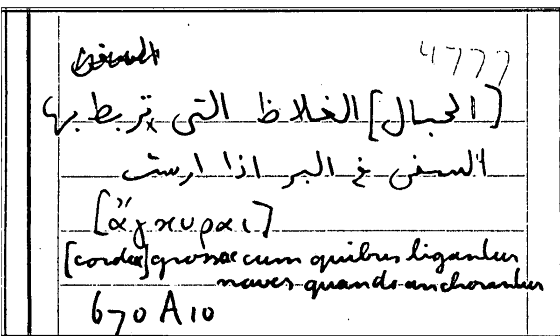 السفن 4777
[الحبال] الغلاظ التى تربط بها
السفن فى البر اذا ارست
[ἄγκυραι]
[cordae] grossae cum quibus ligantur
naves quando anchorantur
670 A 10